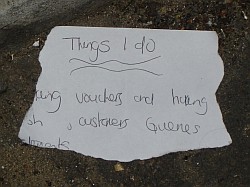 Things I do
vouchers and having
sh, customers Queries